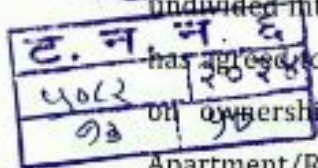 undivided int
ट. न न. ६
has agreed to
५०८२
on ownershi
१३
Apartment/R